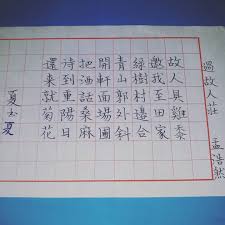 過故人莊 孟浩然
故人具雞黍
邀我至田家
綠樹村邊合
青山郭外斜
開軒面場圃
把酒話桑麻
待到重陽日
還來就菊花
夏 夏